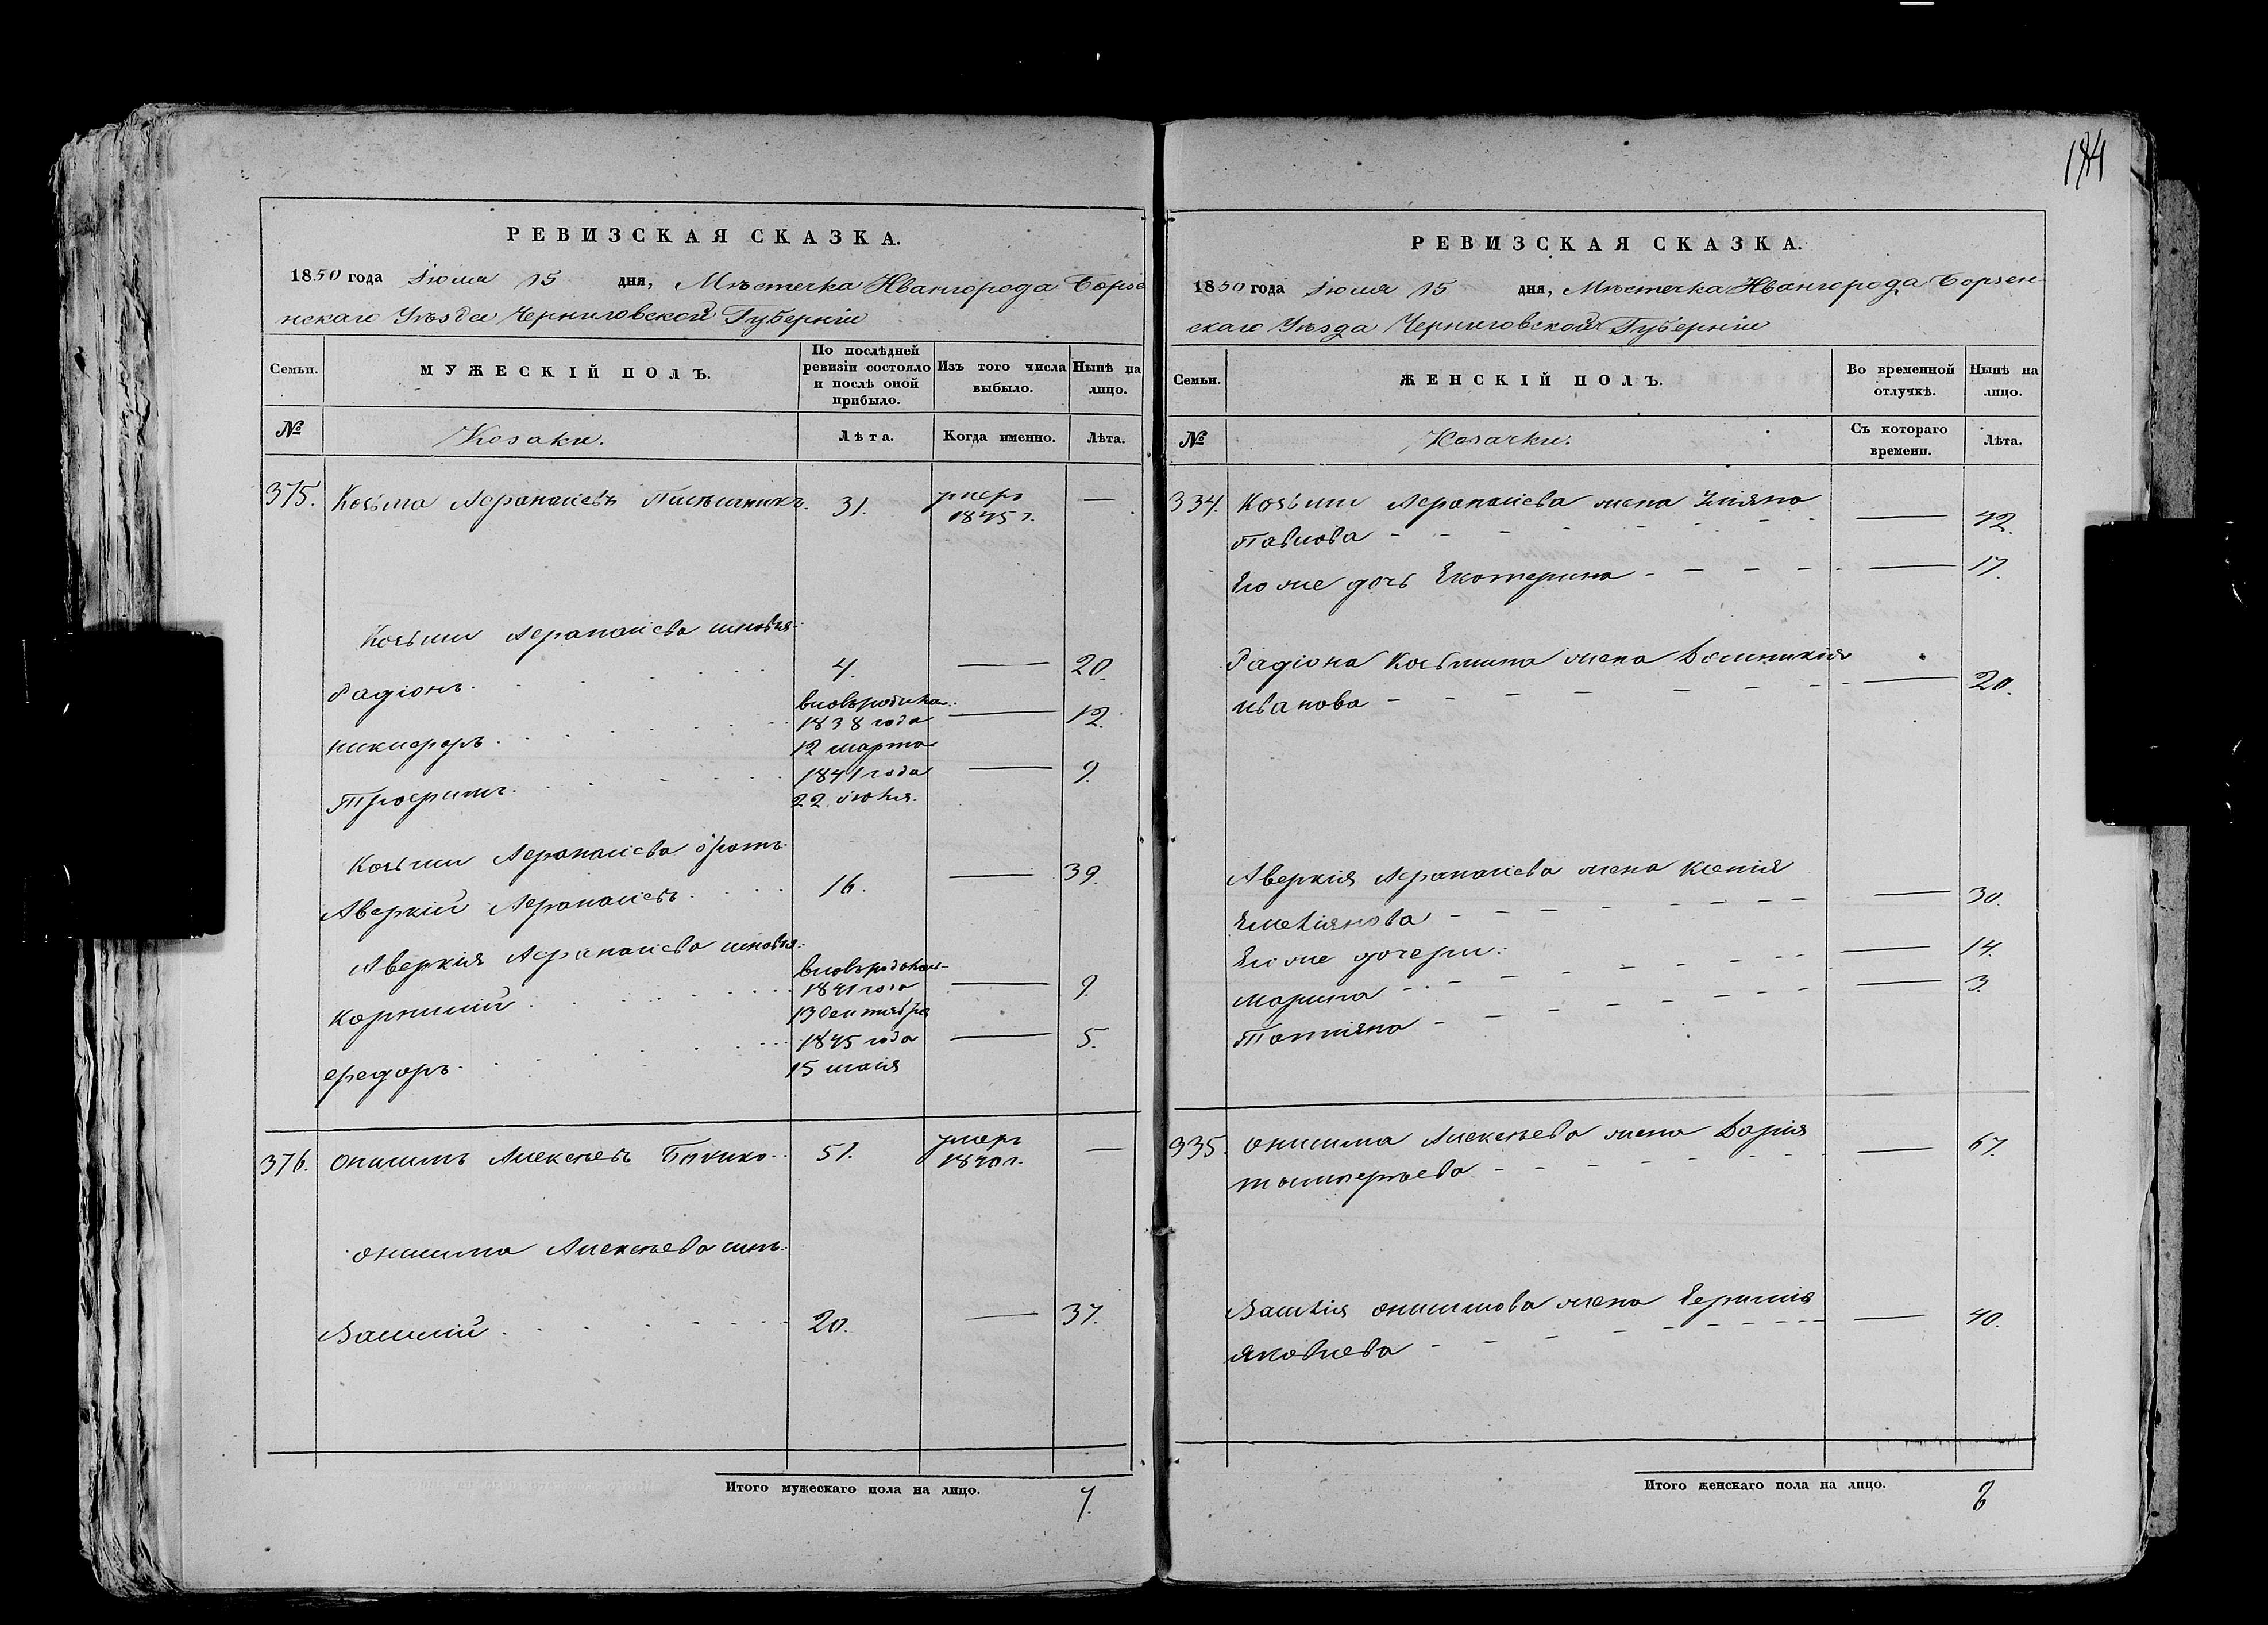 184
РЕВИЗСКАЯ СКАЗКА.
1850 года Іюля 15 дня, Мѣстечка Ивангорода Борзе
нскаго Уѣзда Черниговской Губерніи
Семьи.
МУЖЕСКІЙ ПОЛЪ.
По послѣдней ревизіи состояло и послѣ оной прибыло.
Изъ того числа выбыло.
Нынѣ на лицо.
№
Козаки.
Лѣта.
Когда именно.
Лѣта.
375. Козьма Афанасіевъ 31. умеръ —
1845 г.
Козьмы Афанасіева сыновья:
Радіонъ 4. — 20.
вновьрожден:
Никифоръ 1838 года — 12.
12 марта
Трофимъ 1841 года — 9.
22 іюня.
Козьмы Афанасіева братъ
Аверкій Афанасіевъ 16. — 39.
Аверкія Афанасіева сыновья:
вновьрожден-
Корнилій 1841 года — 9.
13 Сентября
Федоръ 1845 года — 5.
15 маія
376. Онисимъ Алексѣевъ 51. умеръ —
1840 г.
Онисима Алексѣева сынъ:
Василій 20. — 37.
Итого мужескаго пола на лицо. 7.
РЕВИЗСКАЯ СКАЗКА.
1850 года Іюля 15 дня, Мѣстечка Ивангорода Борзен-
скаго Уѣзда Черниговской Губерніи
Семьи.
ЖЕНСКІЙ ПОЛЪ.
Во временной отлучкѣ.
Нынѣ на лицо.
№
Козачки.
Съ котораго времени.
Лѣта.
334. Козьмы Афанасіева жена Уліяна
Павлова — 42.
Его же дочь Екатерина — 17.
Радіона Козьмина жена Домникія
Иванова — 20.
Аверкія Афанасіева жена Ксенія
Емеліянова — 30.
Его же дочери:
Марина — 14.
Татіяна — 3.
335. Онисима Алексѣева жена Дарія
— 67.
Василія Онисимова жена Ефимія
Яковлева — 40.
Итого женскаго пола на лицо. 8